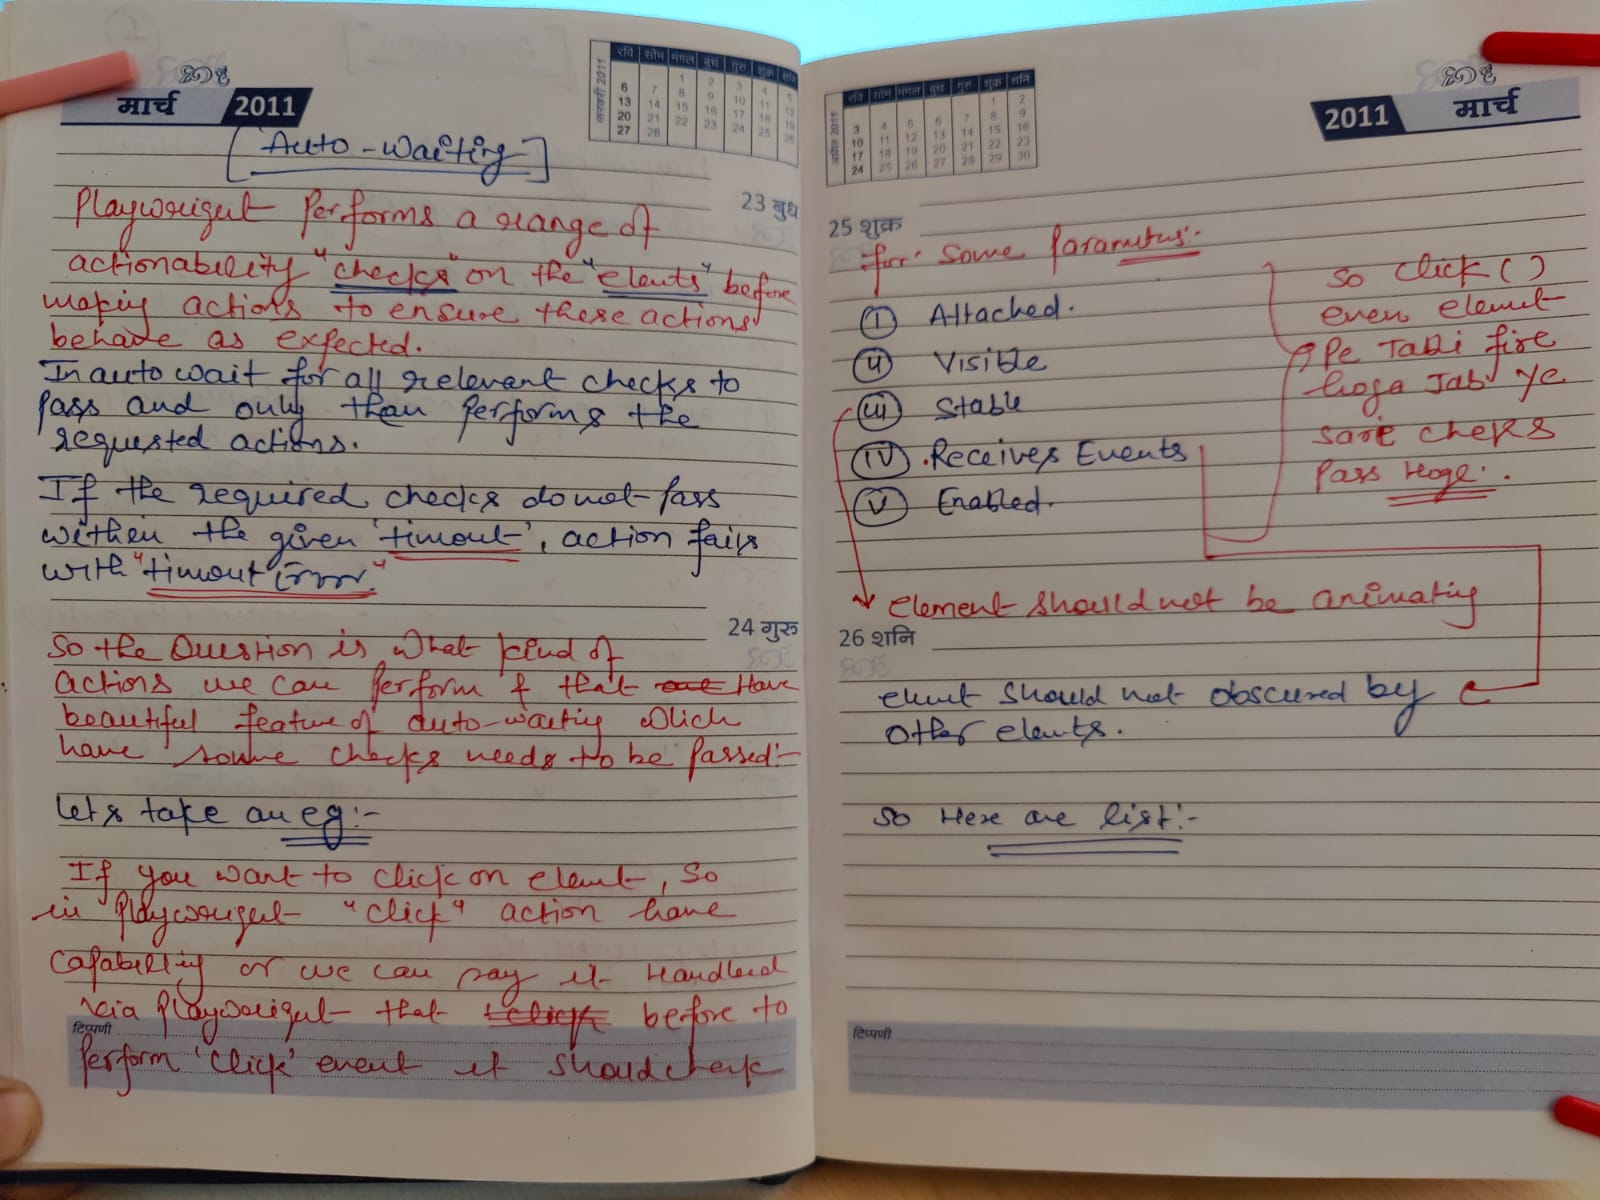 मार्च 2011
फरवरी 2011
रवि सोम मंगल बुध गुरु शुक्र शनि
1 2 3 4 5
6 7 8 9 10 11 12
13 14 15 16 17 18 19
20 21 22 23 24 25 26
27 28
[Auto-Waiting]
23 बुध
Playwright Performs a range of
actionability "checks" on the "elents" before
making actions to ensure these actions
behave as expected.
In auto wait for all relevant checks to
pass and only then performs the
requested actions.
If the required checks do not pass
within the given 'timout', action fails
with "timout Error"
24 गुरु
So the Question is what kind of
actions we can perform & that Have
beautiful feature of auto-waiting which
have some checks needs to be passed:-
Let's take an eg:-
If you want to click on elemt, So
in Playwright "click" action have
Capability or we can say it Handled
via Playwright that click before to
टिप्पणी
perform 'click' event it should check
2011 मार्च
अप्रैल 2011
रवि सोम मंगल बुध गुरु शुक्र शनि
1 2
3 4 5 6 7 8 9
10 11 12 13 14 15 16
17 18 19 20 21 22 23
24 25 26 27 28 29 30
25 शुक्र
for some Paramutus:-
(I) Attached.
(II) Visible
(III) Stable
(IV) Receives Events
(V) Enabled.
So click()
even elemut
Pe Tabi fire
hoga Jab ye
sare cheks
Pass Hoge:.
Element should not be animating
26 शनि
elemt should not obscured by
other elents.
So Here are list:-
टिप्पणी